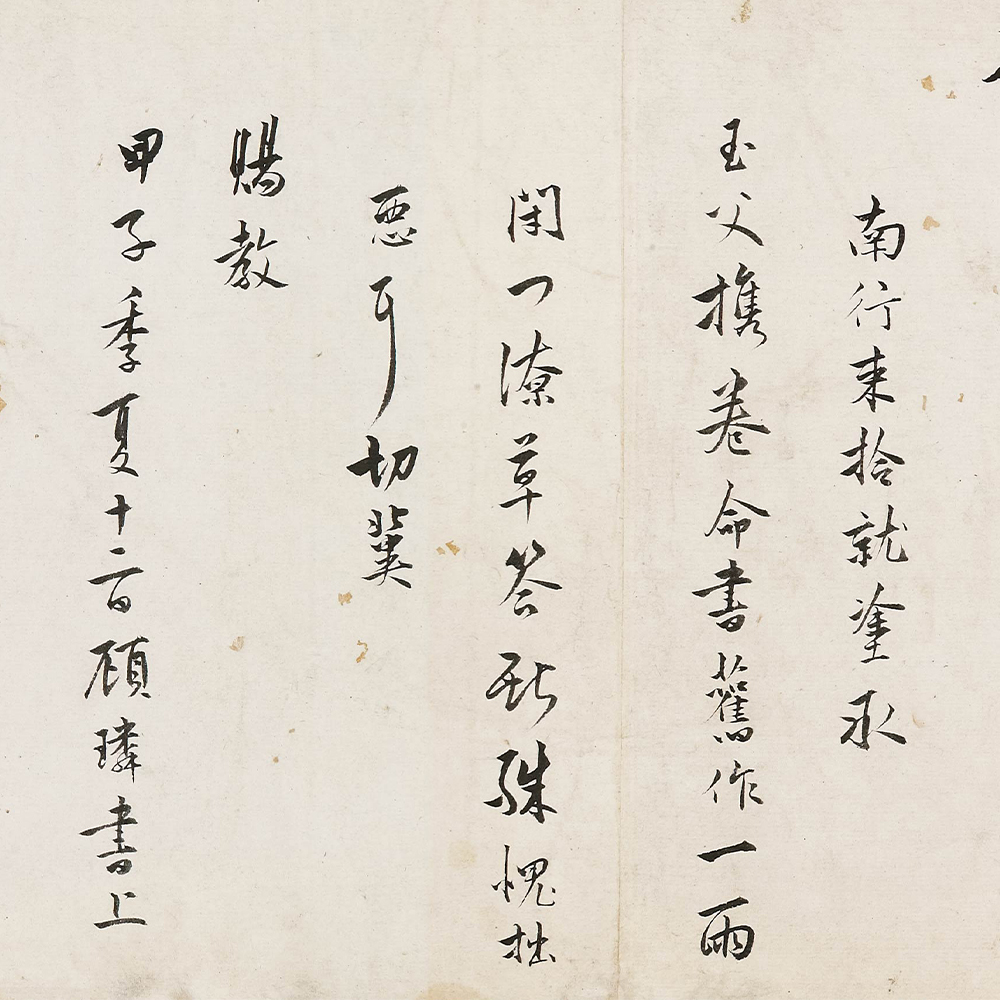 南行束拾就塗承
玉父携卷命書舊作一兩
閒潦草荅殊愧拙
惡耳切冀
賜教
甲子季夏十二日顧璘書上